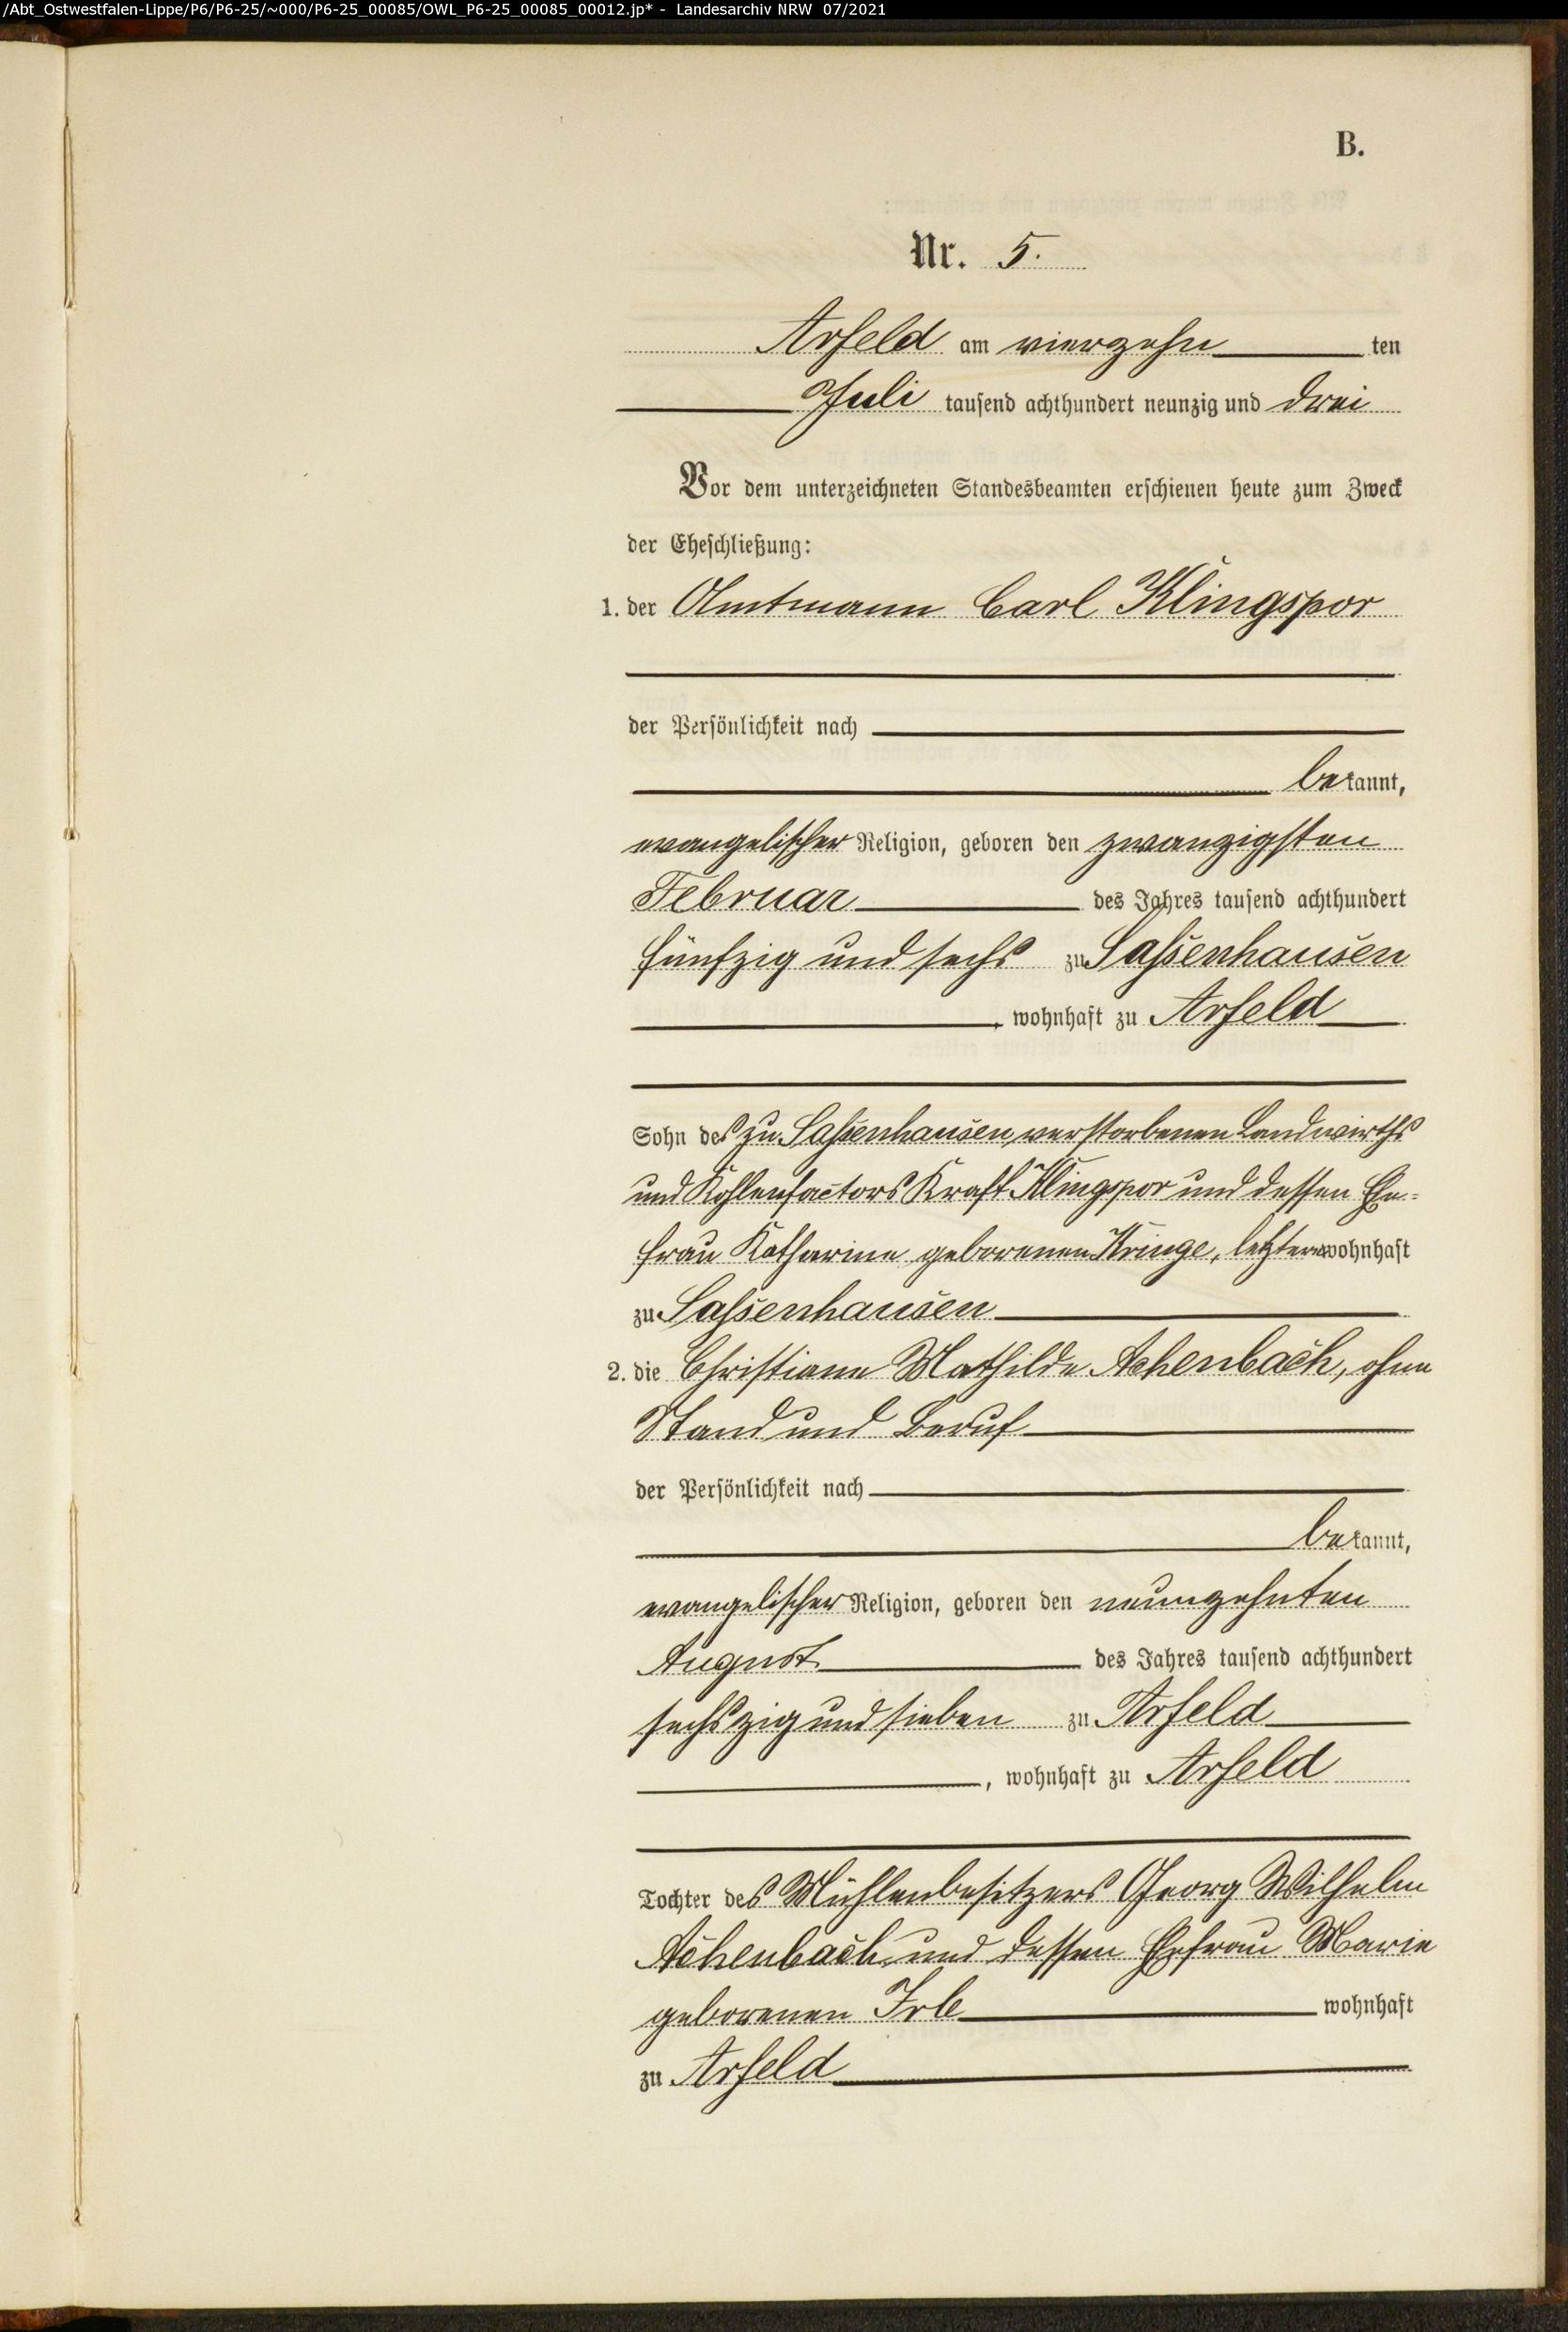 /Abt_Ostwestfalen-Lippe/P6/P6-25/~000/P6-25_00085/OWL_P6-25_00085_00012.jp* - Landesarchiv NRW 07/2021
B.
Nr. 5.
Arfeld am vierzehn ten
Juli tausend achthundert neunzig und drei
Vor dem unterzeichneten Standesbeamten erschienen heute zum Zweck
der Eheschließung:
1. der Amtmann Carl Klingspor
der Persönlichkeit nach
bekannt,
evangelischer Religion, geboren den zwanzigsten
Februar des Jahres tausend achthundert
fünfzig und sechs zu Sassenhausen
, wohnhaft zu Arfeld
Sohn des zu Sassenhausen verstorbenen Landwirths
und Kohlenfactors Kraft Klingspor und dessen Ehe-
frau Katharine geborenen Kringe, letztere wohnhaft
zu Sassenhausen
2. die Christiane Mathilde Achenbach, ohne
Stand und Beruf
der Persönlichkeit nach
bekannt,
evangelischer Religion, geboren den neunzehnten
August des Jahres tausend achthundert
sechszig und sieben zu Arfeld
, wohnhaft zu Arfeld
Tochter des Mühlenbesitzers Georg Wilhelm
Achenbach und dessen Ehefrau Marie
geborenen Irle wohnhaft
zu Arfeld